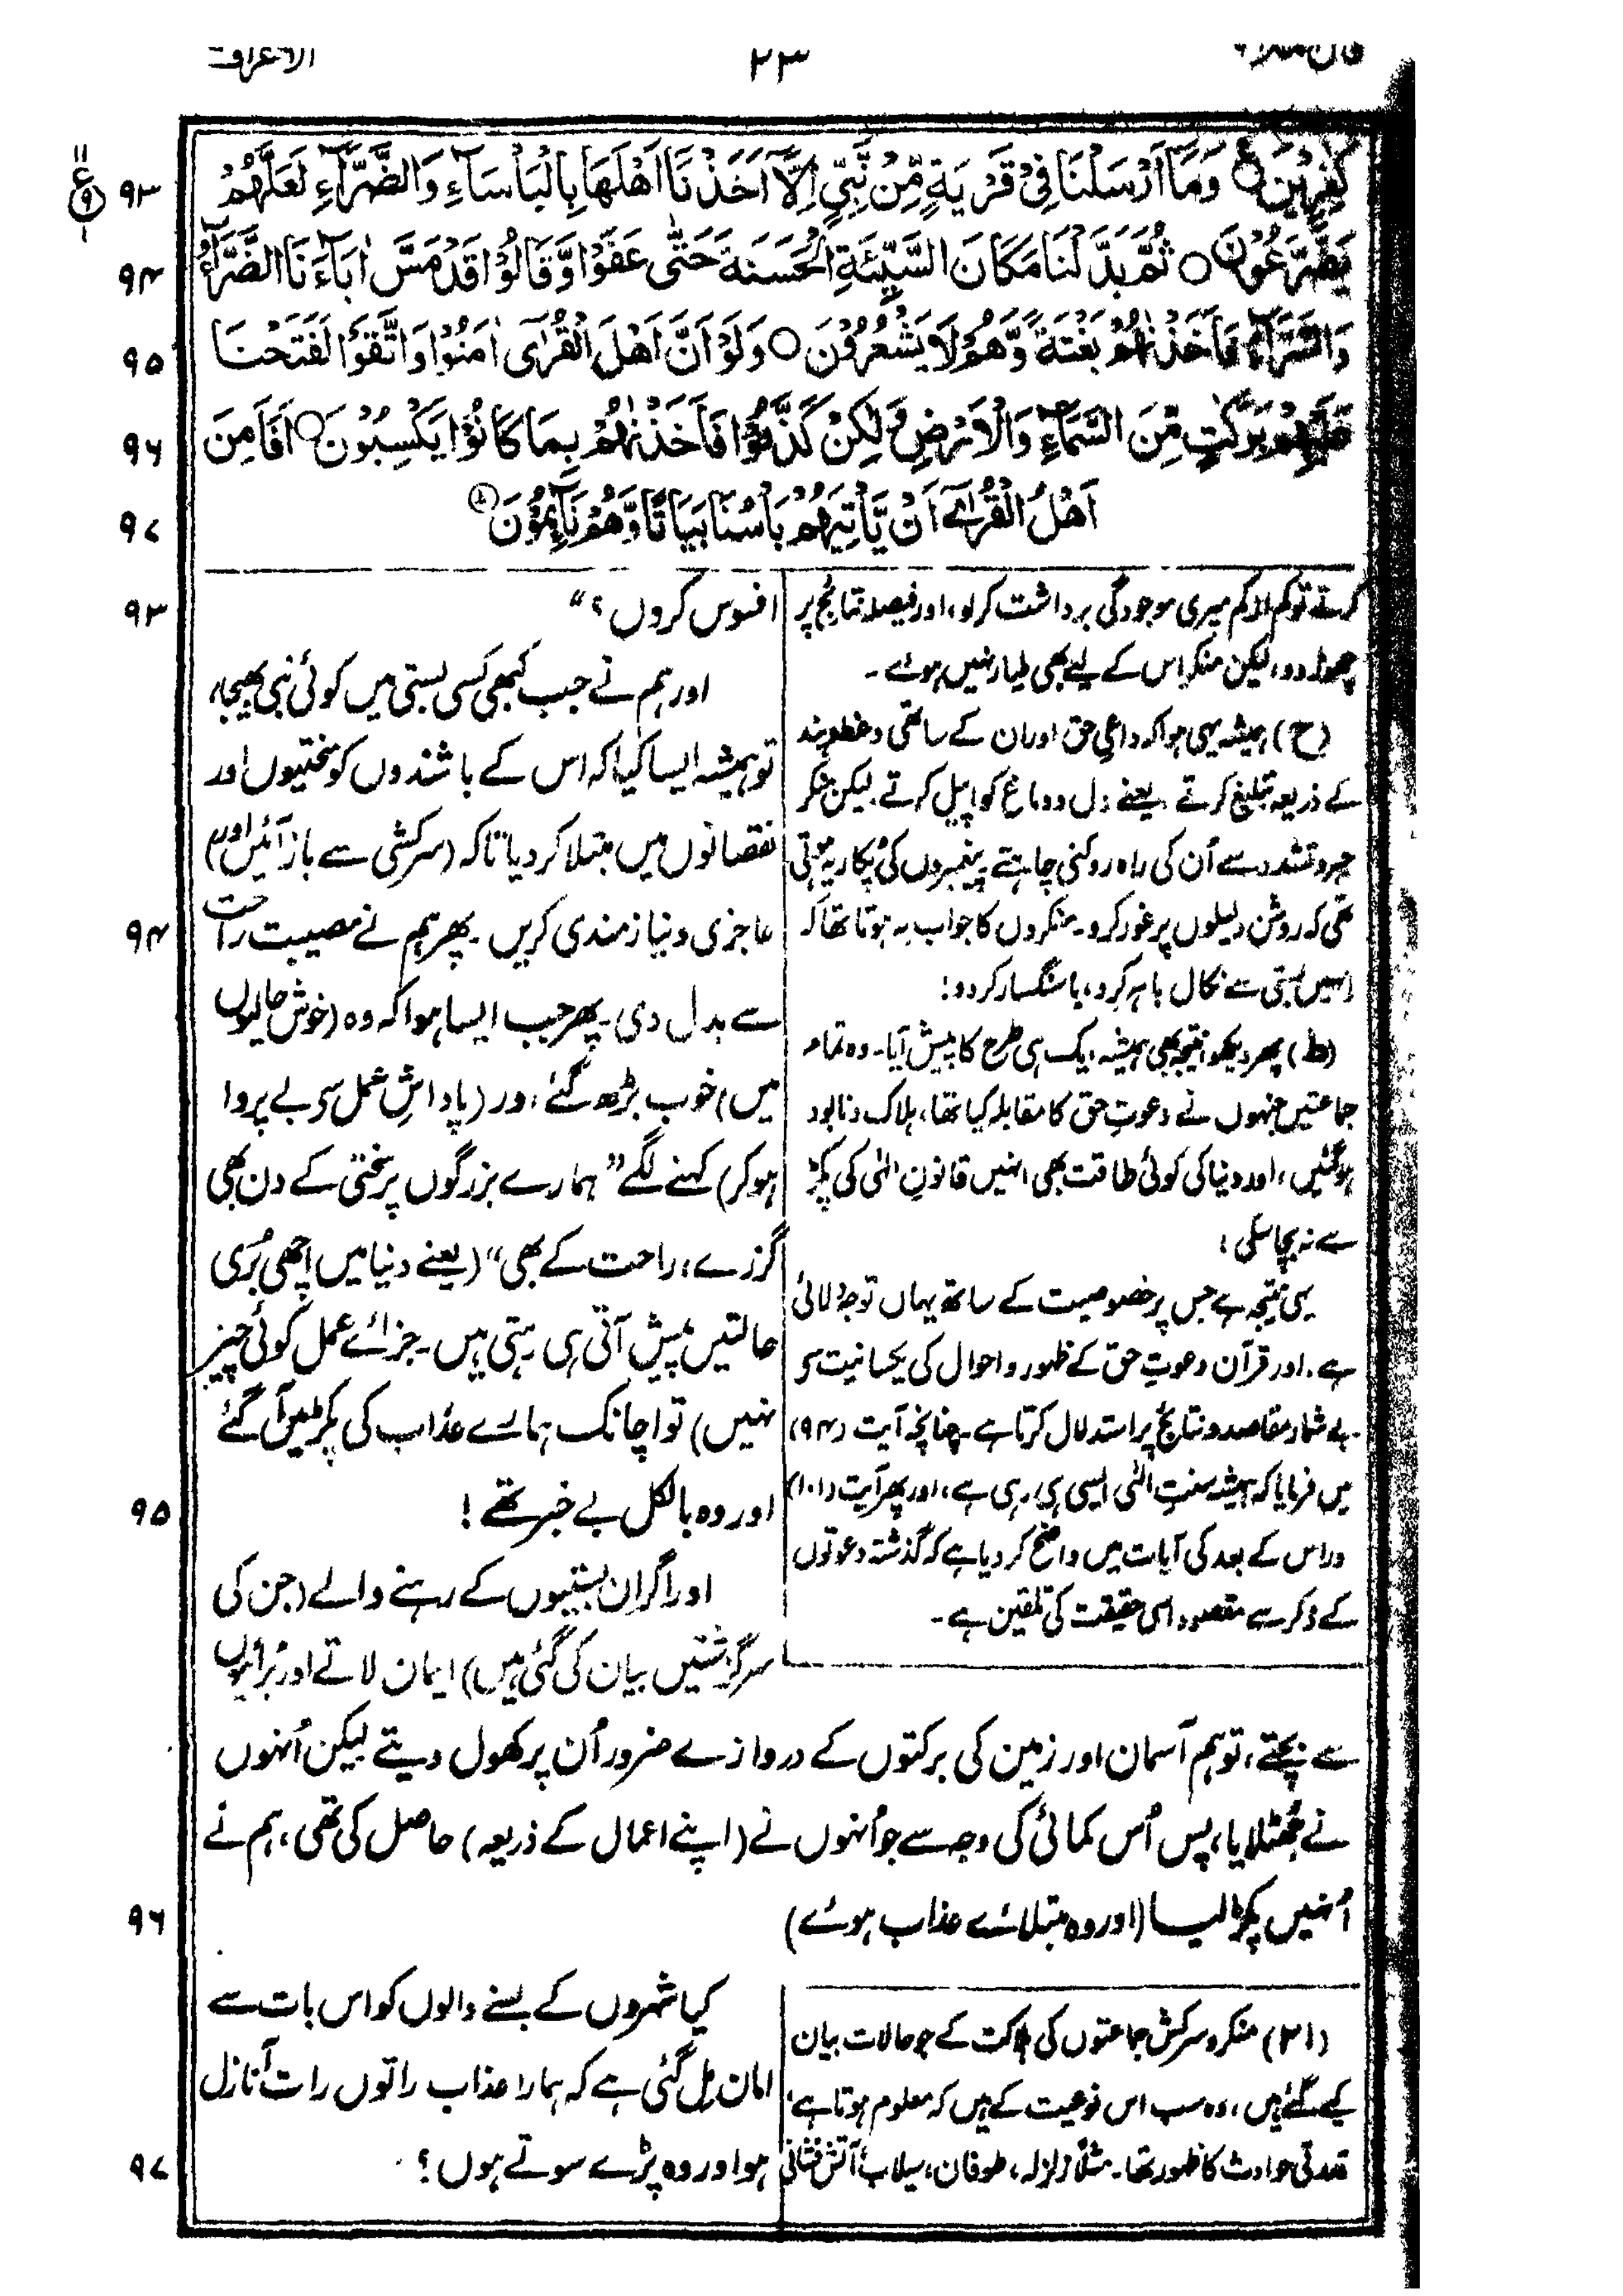 الاعراف
۲۳
كٰفِرِيْنَ ○ وَمَآ اَرْسَلْنَا فِيْ قَرْيَةٍ مِّنْ نَّبِيٍّ اِلَّآ اَخَذْنَآ اَهْلَهَا بِالْبَاْسَآءِ وَالضَّرَّآءِ لَعَلَّهُمْ ۹۳
يَضَّرَّعُوْنَ ○ ثُمَّ بَدَّلْنَا مَكَانَ السَّيِّئَةِ الْحَسَنَةَ حَتّٰى عَفَوْا وَّقَالُوْا قَدْ مَسَّ اٰبَآءَنَا الضَّرَّآءُ ۹۴
وَالسَّرَّآءُ فَاَخَذْنٰهُمْ بَغْتَةً وَّهُمْ لَا يَشْعُرُوْنَ ○ وَلَوْ اَنَّ اَهْلَ الْقُرٰٓى اٰمَنُوْا وَاتَّقَوْا لَفَتَحْنَا ۹۵
عَلَيْهِمْ بَرَكٰتٍ مِّنَ السَّمَآءِ وَالْاَرْضِ وَلٰكِنْ كَذَّبُوْا فَاَخَذْنٰهُمْ بِمَا كَانُوْا يَكْسِبُوْنَ ○ اَفَاَمِنَ ۹۶
اَهْلُ الْقُرٰٓى اَنْ يَّاْتِيَهُمْ بَاْسُنَا بَيَاتًا وَّهُمْ نَآئِمُوْنَ ۹۷
کرتے تو کم از کم میری موجودگی برداشت کرلو، اور فیصلہ نتائج پر
چھوڑ دو، لیکن منکر اس کے لیے بھی طیار نہیں ہوئے۔
(ح) ہمیشہ یہی ہوا کہ داعیِ حق اور ان کے ساتھی وعظ و پند
کے ذریعہ تبلیغ کرتے۔ یعنے دل و دماغ کو اپیل کرتے۔ لیکن منکر
جبر و تشدد سے اُن کی راہ روکنی چاہتے۔ پیغمبروں کی پکار یہ ہوتی
تھی کہ روشن دلیلوں پر غور کرو۔ منکروں کا جواب یہ ہوتا تھا کہ
انہیں بستی سے نکال باہر کرو، یا سنگسار کر دو!
(ط) پھر دیکھو نتیجہ بھی ہمیشہ ایک ہی طرح کا پیش آیا۔ وہ تمام
جماعتیں جنہوں نے دعوتِ حق کا مقابلہ کیا تھا، ہلاک و نابود
ہوگئیں، اور دنیا کی کوئی طاقت بھی انہیں قانونِ الٰہی کی پکڑ
سے نہ بچا سکی!
یہی نتیجہ ہے جس پر خصوصیت کے ساتھ یہاں توجہ دلائی
ہے۔ اور قرآن دعوتِ حق کے ظہور و احوال کی یکسانیت سے
بے شمار مقاصد و نتائج پر استدلال کرتا ہے۔ چنانچہ آیت (۹۴)
میں فرمایا کہ ہمیشہ سنتِ الٰہی ایسی ہی رہی ہے، اور پھر آیت (۱۰۱)
ور اس کے بعد کی آیات میں واضح کر دیا ہے کہ گذشتہ دعوتوں
کے ذکر سے مقصود اسی حقیقت کی تلقین ہے۔
افسوس کروں؟“ ۹۳
اور ہم نے جب کبھی کسی بستی میں کوئی نبی بھیجا،
تو ہمیشہ ایسا کیا کہ اس کے باشندوں کو سختیوں اور
نقصانوں میں مبتلا کر دیا تاکہ (سرکشی سے باز آئیں اور)
عاجزی و نیازمندی کریں۔ پھر ہم نے مصیبت راحت ۹۴
سے بدل دی۔ پھر جب ایسا ہوا کہ وہ (خوش حالیوں
میں) خوب بڑھ گئے، اور (پاداشِ عمل سے بے پروا
ہوکر) کہنے لگے ”ہمارے بزرگوں پر سختی کے دن بھی
گزرے، راحت کے بھی“ (یعنے دنیا میں اچھی بُری
حالتیں پیش آتی ہی رہتی ہیں۔ جزائے عمل کوئی چیز
نہیں) تو اچانک ہمارے عذاب کی پکڑ میں آ گئے
اور وہ بالکل بے خبر تھے! ۹۵
اور اگر ان بستیوں کے رہنے والے (جن کی
سرگزشتیں بیان کی گئی ہیں) ایمان لاتے اور بُرائیوں
سے بچتے، تو ہم آسمان اور زمین کی برکتوں کے دروازے ضرور اُن پر کھول دیتے لیکن اُنہوں
نے جھٹلایا، پس اُس کمائی کی وجہ سے جو اُنہوں نے (اپنے اعمال کے ذریعہ) حاصل کی تھی، ہم نے
اُنہیں پکڑ لیا (اور وہ مبتلائے عذاب ہوئے) ۹۶
(۲۱) منکر و سرکش جماعتوں کی ہلاکت کے جو حالات بیان
کیے گئے ہیں، وہ سب اس نوعیت کے ہیں کہ معلوم ہوتا ہے،
قدرتی حوادث کا ظہور تھا۔ مثلاً زلزلہ، طوفان، سیلاب، آتش فشانی
کیا شہروں کے بسنے والوں کو اس بات سے
امان مل گئی ہے کہ ہمارا عذاب راتوں رات آ نازل
ہو اور وہ پڑے سوتے ہوں؟ ۹۷